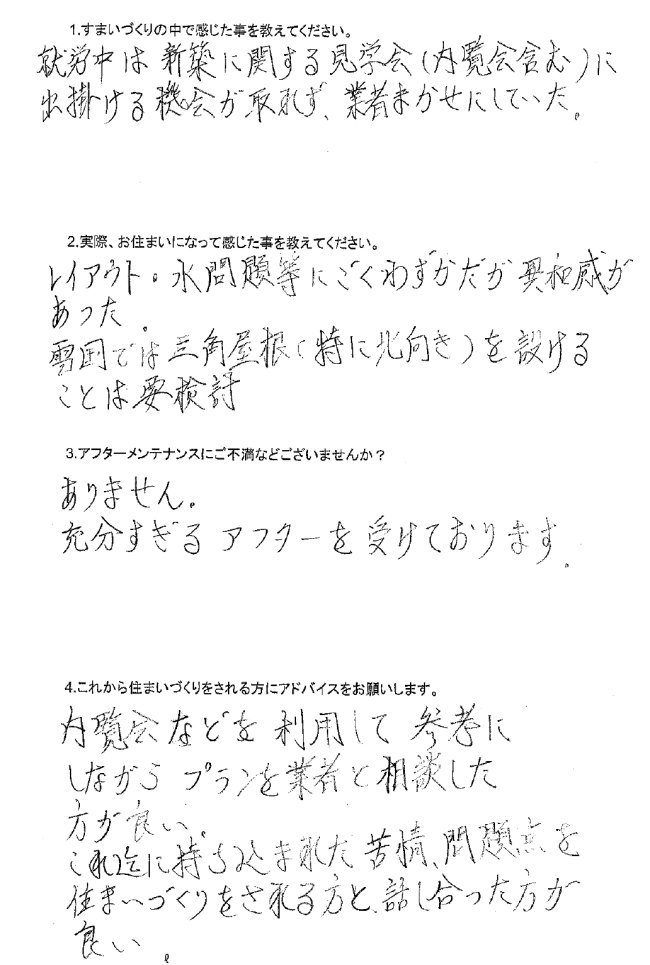 1.すまいづくりの中で感じた事を教えてください。
就労中は新築に関する見学会(内覧会含む)に
出掛ける機会が取れず、業者まかせにしていた。
2.実際、お住まいになって感じた事を教えてください。
レイアウト・水問題等にごくわずかだが異和感が
あった。
雪国では三角屋根(特に北向き)を設ける
ことは要検討
3.アフターメンテナンスにご不満などございませんか?
ありません。
充分すぎるアフターを受けております。
4.これから住まいづくりをされる方にアドバイスをお願いします。
内覧会などを利用して参考に
しながらプランを業者と相談した
方が良い。
これ迄に持ち込まれた苦情、問題点を
住まいづくりをされる方と、話し合った方が
良い。